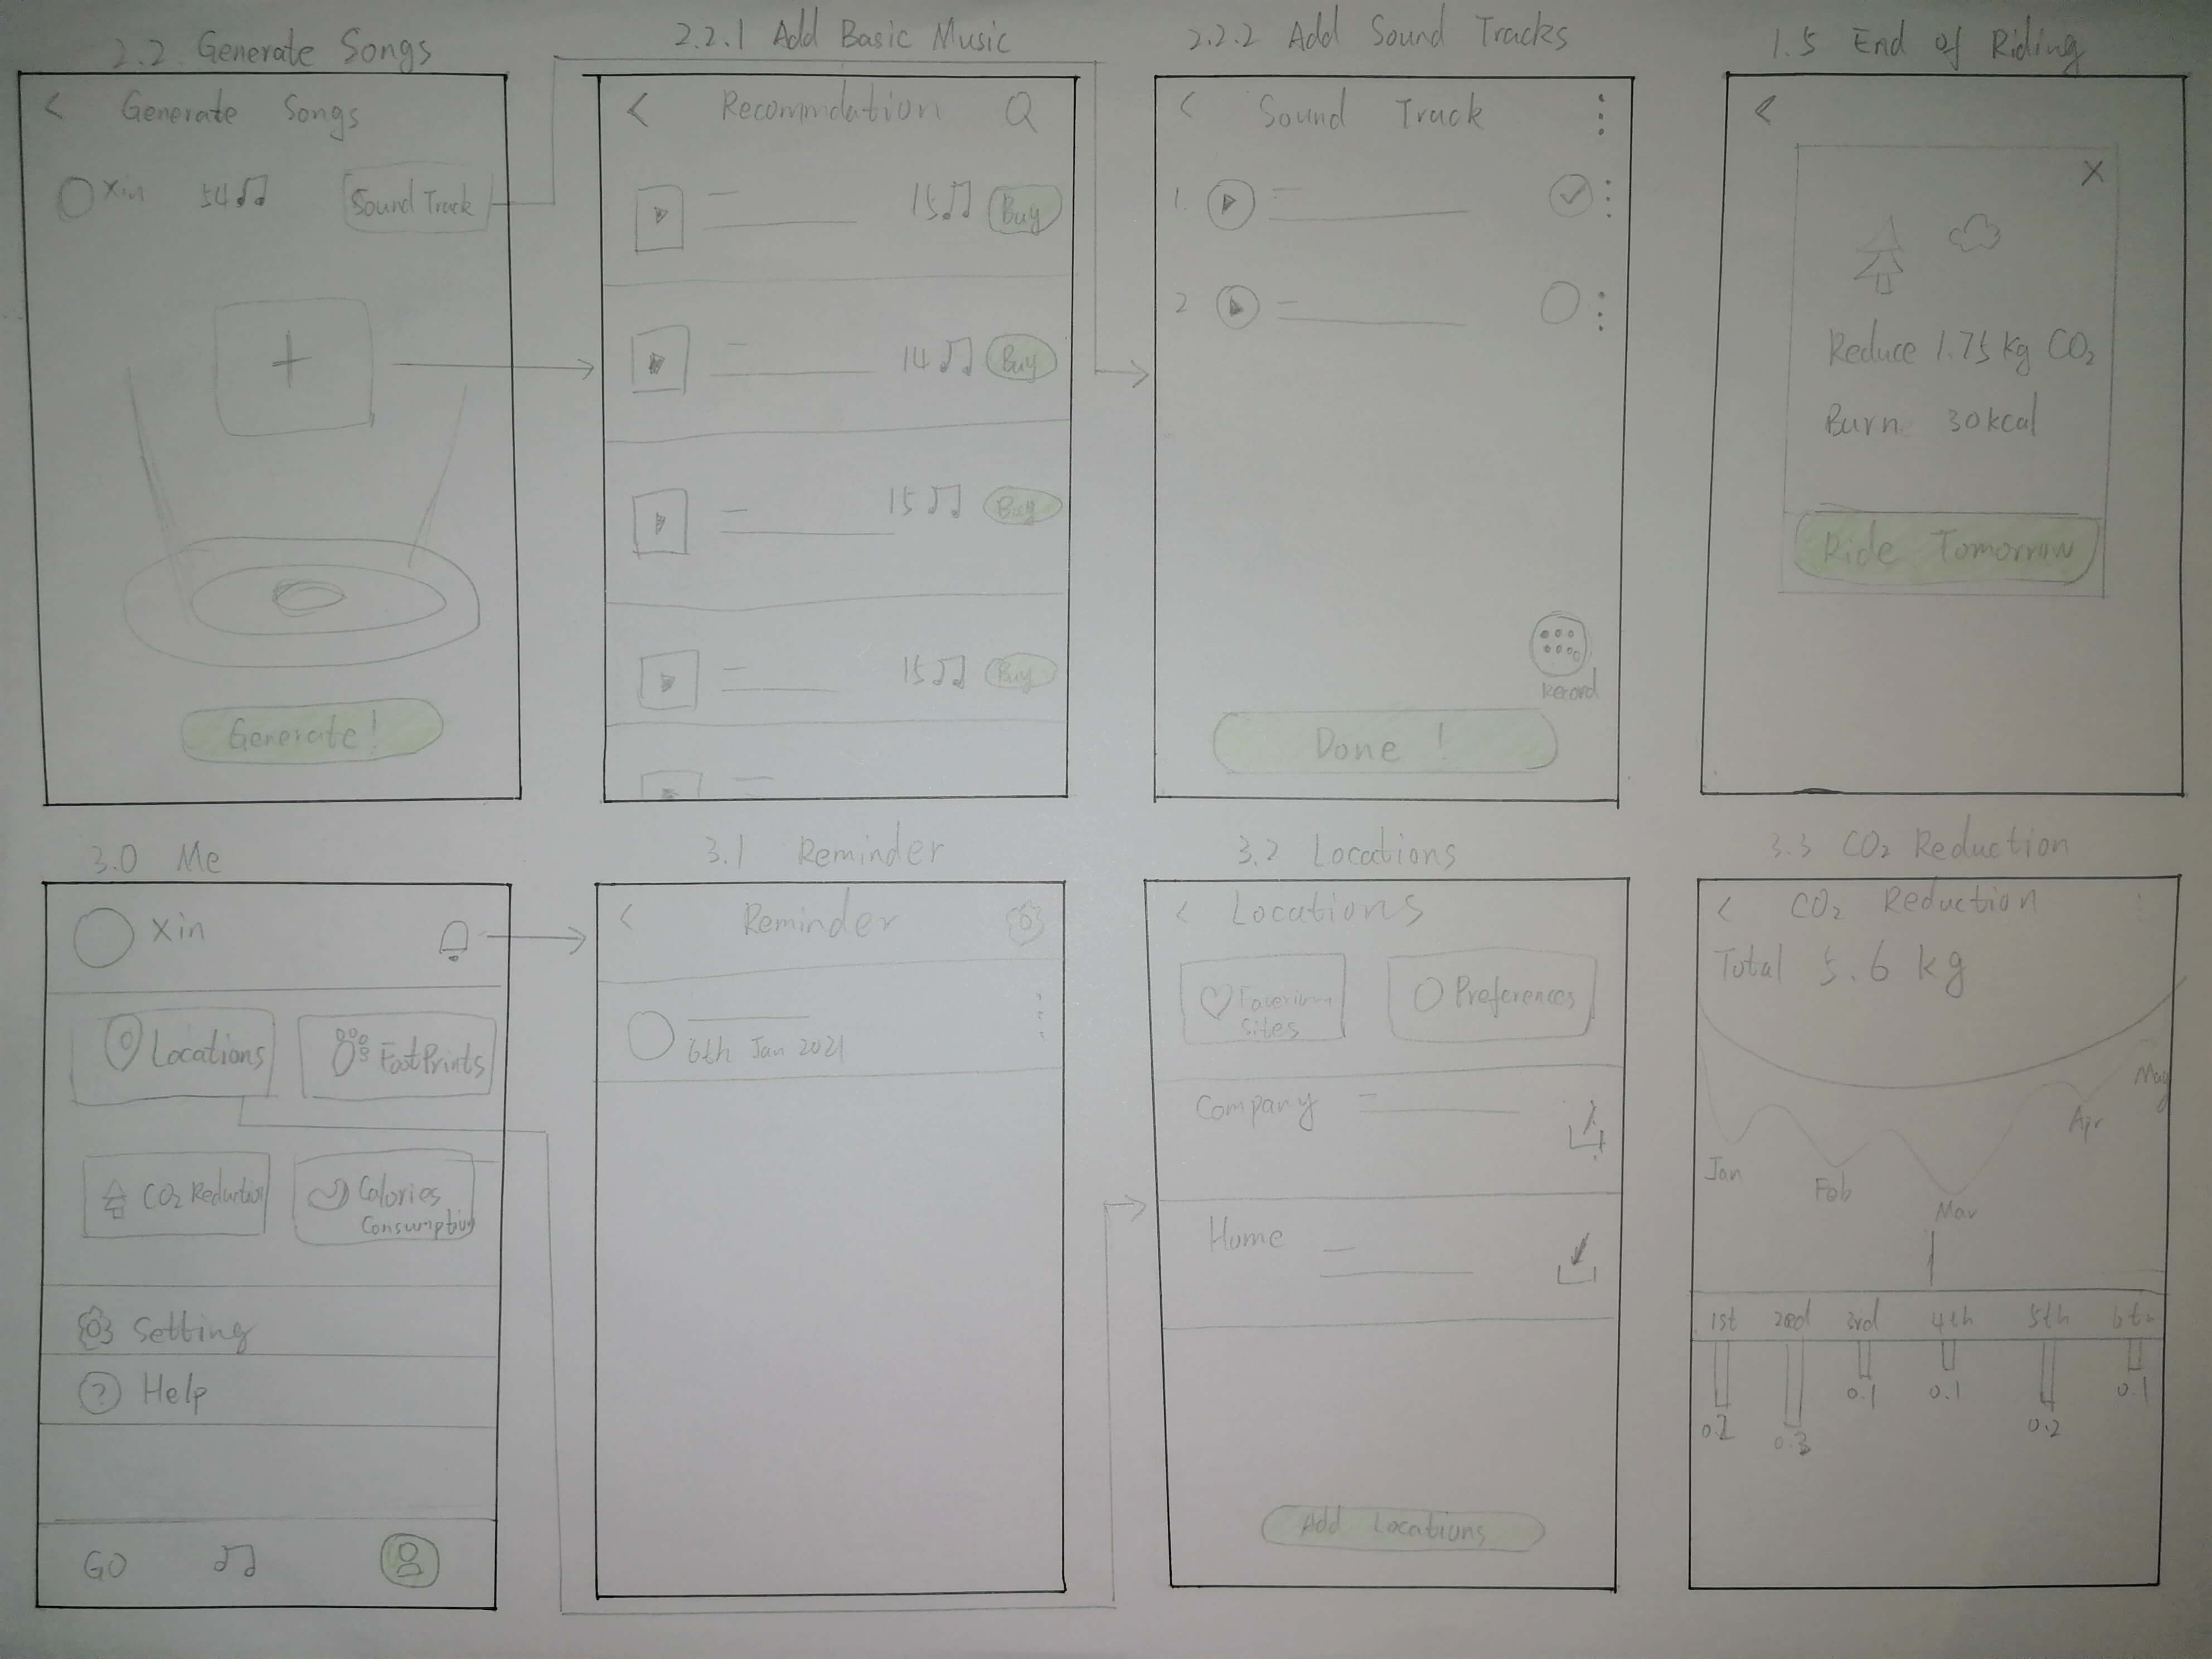 2.2 Generate Songs
< Generate Songs
Xin 54♫ Sound Track
+
Generate!
2.2.1 Add Basic Music
< Recommdation
15♫ Buy
14♫ Buy
15♫ Buy
15♫ Buy
2.2.2 Add Sound Tracks
< Sound Track
1.
2
Record
Done !
1.5 End of Riding
<
X
Reduce 1.75 kg CO₂
Burn 30kcal
Ride Tomorrow
3.0 Me
Xin
Locations
FootPrints
CO₂ Reduction
Calories
Consumption
Setting
? Help
GO ♫
3.1 Reminder
< Reminder
6th Jan 2021
3.2 Locations
< Locations
Sites
Preferences
Company
Home
Add Locations
3.3 CO₂ Reduction
< CO₂ Reduction
Total 5.6 kg
Jan
Feb
Mar
Apr
May
1st 2nd 3rd 4th 5th 6th
0.2 0.3 0.1 0.1 0.2 0.1